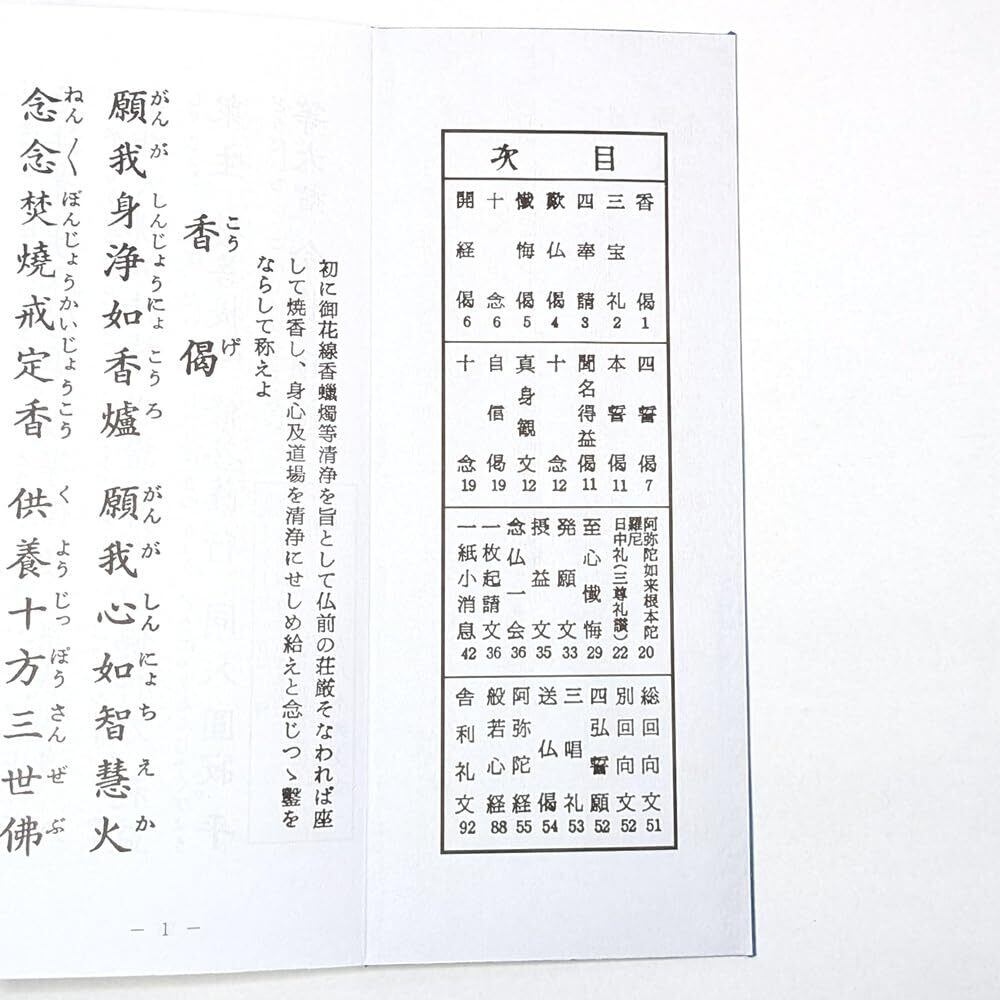 目次
香偈1
三宝礼2
四奉請3
歎仏偈4
懺悔偈5
十念6
開経偈6
四誓偈7
本誓偈11
聞名得益偈11
十念12
真身観文12
自信偈19
十念19
阿弥陀如来根本陀羅尼20
日中礼(三尊礼讃)22
至心懺悔29
発願文33
摂益文35
念仏一会36
一枚起請文36
一紙小消息42
総回向文51
別回向文52
四弘誓願52
三唱礼53
送仏偈54
阿弥陀経55
般若心経88
舎利礼文92
初に御花線香蠟燭等清浄を旨として仏前の荘厳そなわれば座
して焼香し、身心及道場を清浄にせしめ給えと念じつゝ鑿を
ならして称えよ
こうげ
香偈
がんがしんじょうにょこうろ がんがしんにょちえか
願我身浄如香爐 願我心如智慧火
ねん〱ぼんじょうかいじょうこう くようじっぽうさんぜぶ
念念焚燒戒定香 供養十方三世佛
― 1 ―